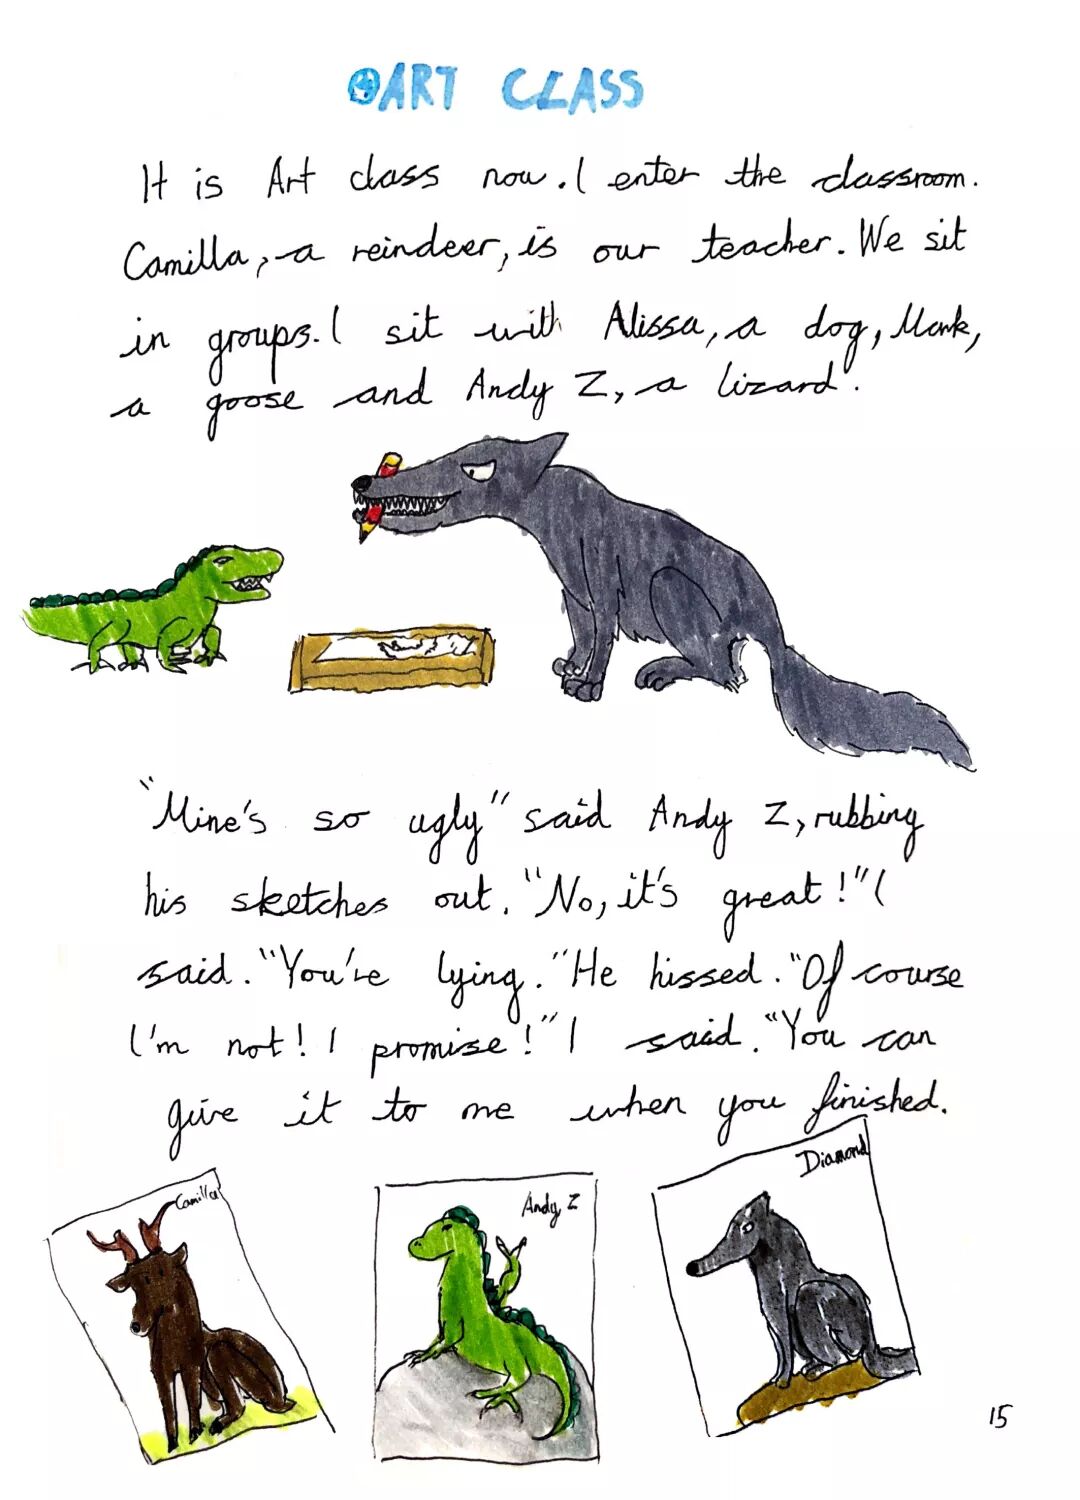 ART CLASS
It is Art class now. I enter the classroom.
Camilla, a reindeer, is our teacher. We sit
in groups. I sit with Alissa, a dog, Mark,
a goose and Andy Z, a lizard.
"Mine's so ugly" said Andy Z, rubbing
his sketches out. "No, it's great!" I
said. "You're lying." He hissed. "Of course
I'm not! I promise!" I said. "You can
give it to me when you finished.
Camilla
Andy Z
Diamond
15